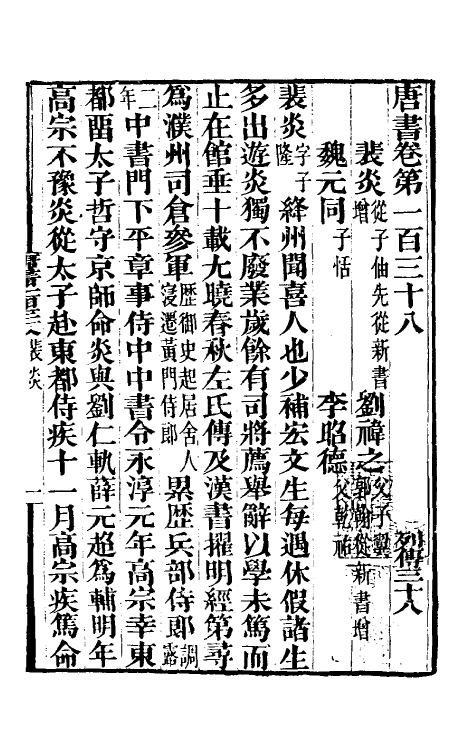 唐書卷第一百三十八　列傳三十八
裴炎從子伷先從新書增　劉禕之父子翼郭翰從新書增
魏元同子恬　李昭德父乾祐
裴炎字子隆絳州聞喜人也少補宏文生每遇休假諸生
多出遊炎獨不廢業歲餘有司將薦舉辭以學未篤而
止在館垂十載尢曉春秋左氏傳及漢書擢明經第尋
爲濮州司倉參軍歷御史起居舍人寖遷黃門侍郎累歷兵部侍郎調露
二年中書門下平章事侍中中書令永淳元年高宗幸東
都留太子哲守京師命炎與劉仁軌薛元超爲輔明年
高宗不豫炎從太子赴東都侍疾十一月高宗疾篤命
裴炎
一